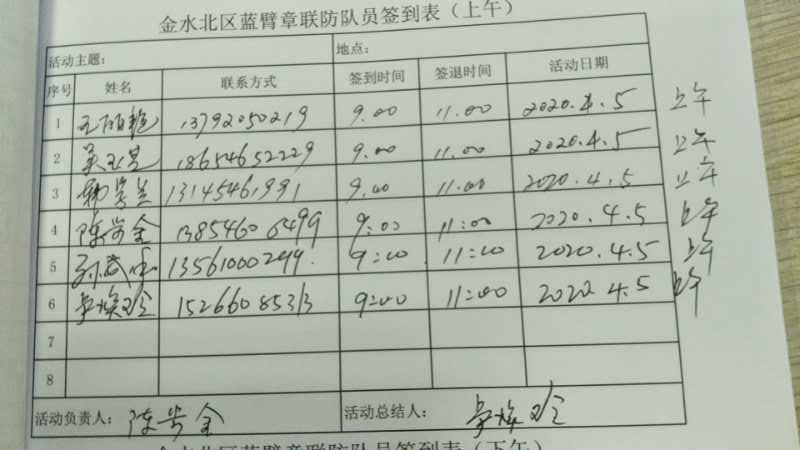 金水北区蓝臂章联防队员签到表（上午）
活动主题： 地点：
序号 姓名 联系方式 签到时间 签退时间 活动日期
1 13792050219 9.00 11.00 2020.4.5 上午
2 18654652229 9.00 11.00 2020.4.5 上午
3 13145461991 9.00 11.00 2020.4.5 上午
4 陈岩金 13854606499 9:00 11:00 2020.4.5 上午
5 13561000299. 9:00 11:00 2020.4.5 上午
6 15266085313 9:00 11:00 2020 4.5 上午
7
8
活动负责人： 陈岩金 活动总结人：
金水北区蓝臂章联防队员签到表（下午）